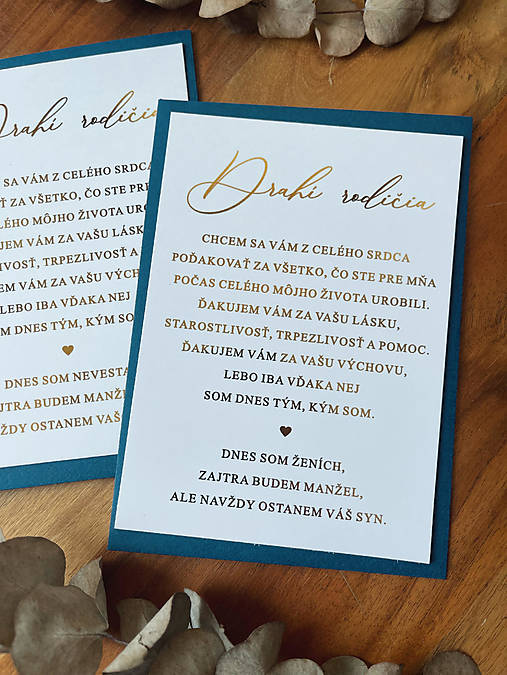 Drahí rodičia
SA VÁM Z CELÉHO SRDCA
ZA VŠETKO, ČO STE PRE
CELÉHO MÔJHO ŽIVOTA
VÁM ZA VAŠU LÁSKU,
TRPEZLIVOSŤ A
VÁM ZA VAŠU
LEBO IBA VĎAKA NEJ
DNES TÝM, KÝM
DNES SOM NEVESTA
BUDEM MANŽEL
OSTANEM VAŠ
Drahí rodičia
CHCEM SA VÁM Z CELÉHO SRDCA
POĎAKOVAŤ ZA VŠETKO, ČO STE PRE MŇA
POČAS CELÉHO MÔJHO ŽIVOTA UROBILI.
ĎAKUJEM VÁM ZA VAŠU LÁSKU,
STAROSTLIVOSŤ, TRPEZLIVOSŤ A POMOC.
ĎAKUJEM VÁM ZA VAŠU VÝCHOVU,
LEBO IBA VĎAKA NEJ
SOM DNES TÝM, KÝM SOM.
DNES SOM ŽENÍCH,
ZAJTRA BUDEM MANŽEL,
ALE NAVŽDY OSTANEM VÁŠ SYN.